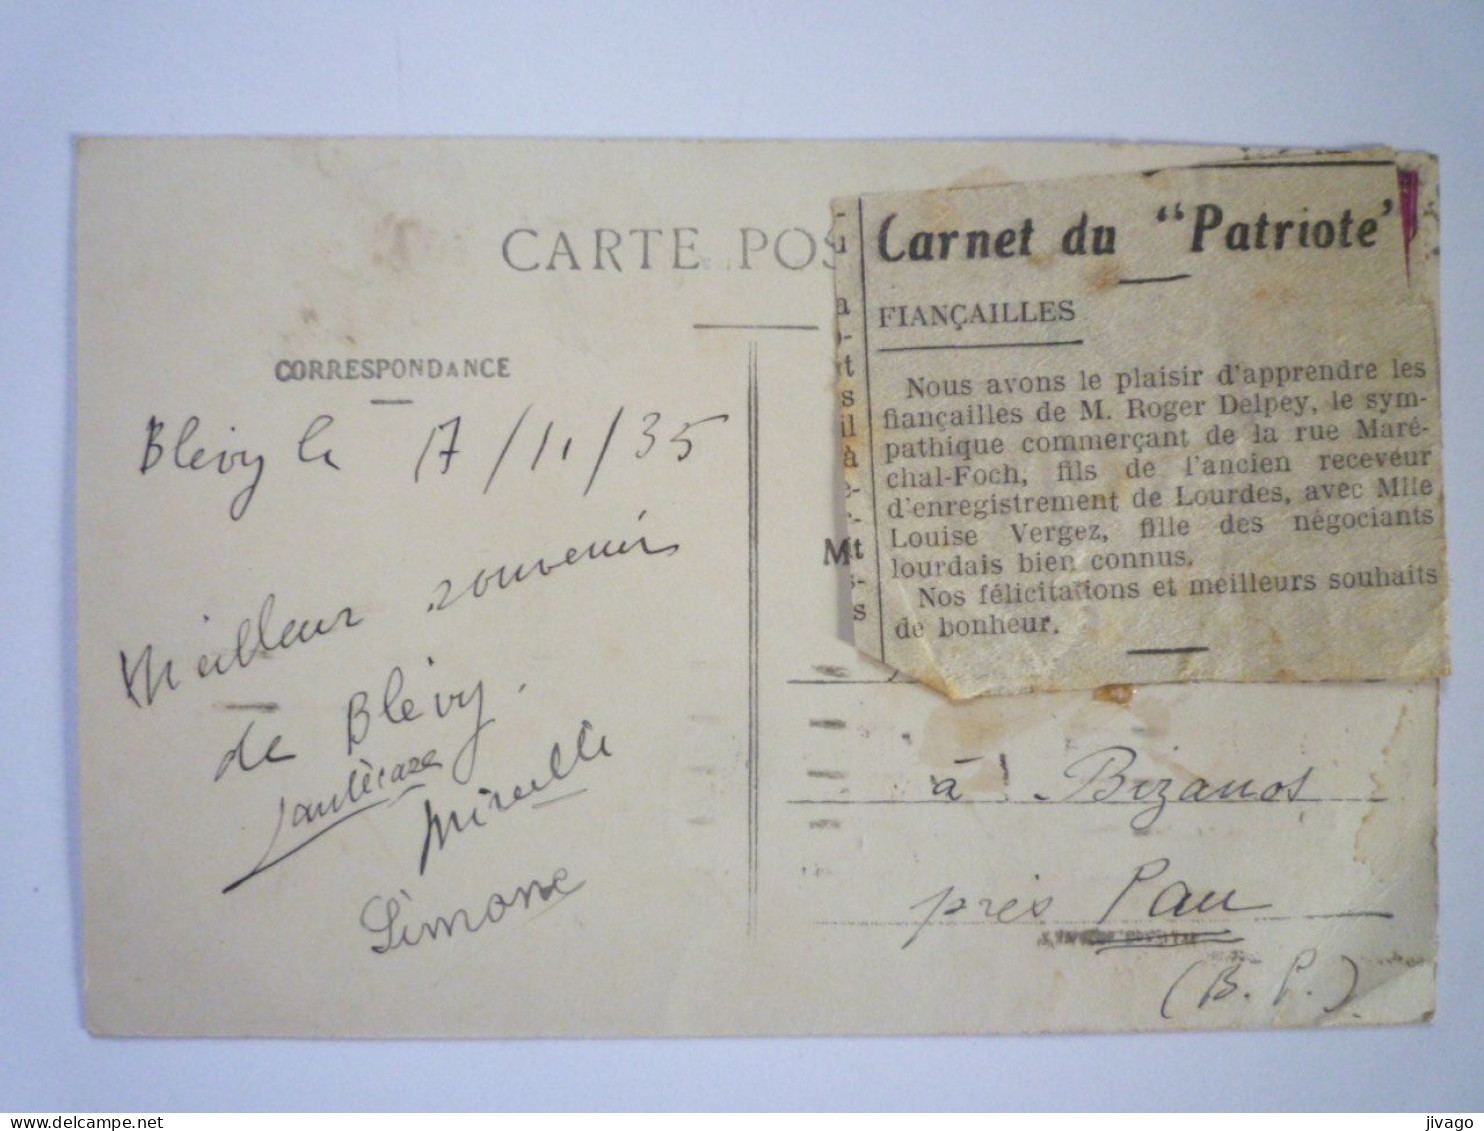 CARTE POS
CORRESPONDANCE
Blévy le 17/11/35
Meilleur souvenir
de Blévy.
Mireille
Simone
Carnet du "Patriote"
FIANÇAILLES
Nous avons le plaisir d'apprendre les
fiançailles de M. Roger Delpey, le sym-
pathique commerçant de la rue Maré-
chal-Foch, fils de l'ancien receveur
d'enregistrement de Lourdes, avec Mlle
Louise Vergez, fille des négociants
lourdais bien connus.
Nos félicitations et meilleurs souhaits
de bonheur.
M
à Bizanos
près Pau
(B. P.)
jivago
delcampe.net